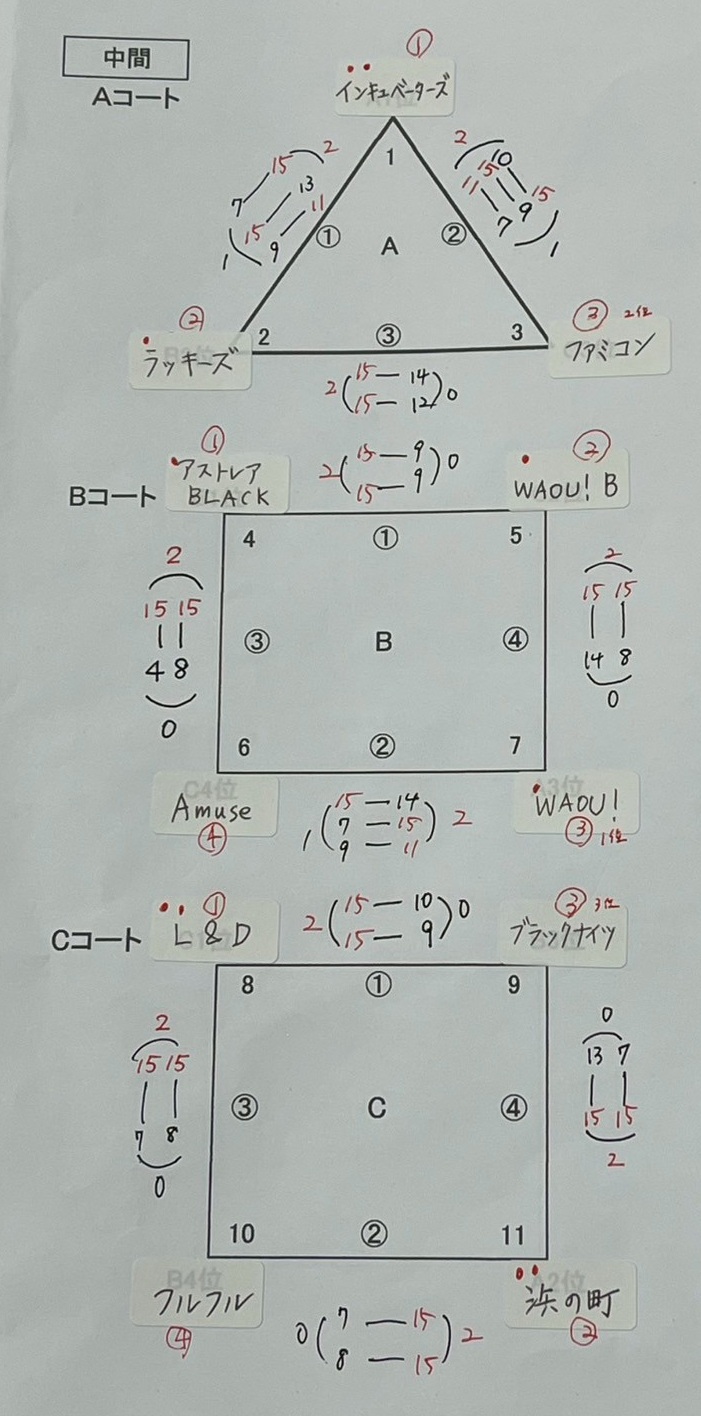 中間
Aコート
①
インキュベーターズ
2 15 7
13 15
11 9 1
2 10 15
15 9
11 7 1
1
① A ②
② 2 ③ 3 ③ 2位
ラッキーズ
ファミコン
2(15—14)0
15—12
① 2(15—9)0 ②
15—9
アストレア
Bコート BLACK
WAOU! B
4 ① 5
2
15 15
4 8
0
③ B ④
2
15 15
14 8
0
6 ② 7
C4位
A3位
Amuse
④
1(15—14)2
7—15
9—11
WAOU!
③ 1位
① 2(15—10)0 ③ 3位
15—9
Cコート L&D
ブラックナイツ
8 ① 9
2
15 15
7 8
0
③ C ④
0
13 7
15 15
2
10 ② 11
B4位
A2位
フルフル
④
0(7—15)2
8—15
浜の町
②